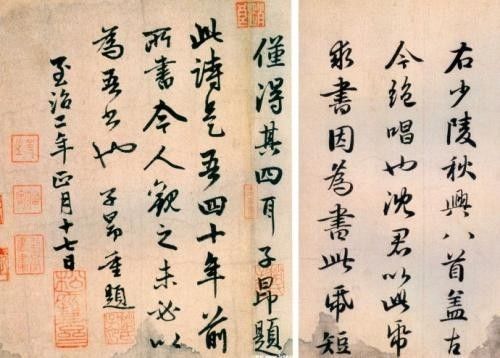 右少陵秋興八首盖古
今绝唱也沈君以此帋
求書因為書此帋短
僅得其四耳子昂題
此詩是吾四十年前
所書今人觀之未必以
為吾书也子昂重題
至治二年正月十七日
松雪齋